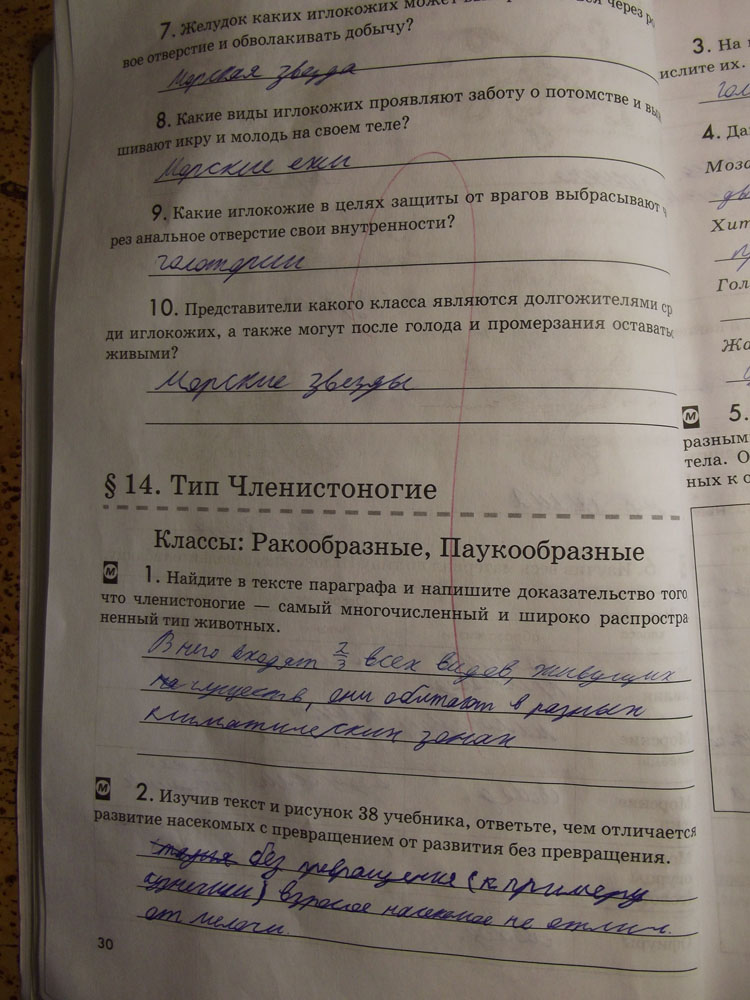 7. Желудок каких иглокожих может через
вое отверстие и обволакивать добычу?
Морская звезда
8. Какие виды иглокожих проявляют заботу о потомстве и вы
шивают икру и молодь на своем теле?
Морские ежи
9. Какие иглокожие в целях защиты от врагов выбрасывают ч
рез анальное отверстие свои внутренности?
голотурии
10. Представители какого класса являются долгожителями ср
ди иглокожих, а также могут после голода и промерзания оставать
живыми?
Морские звезды
§ 14. Тип Членистоногие
Классы: Ракообразные, Паукообразные
М 1. Найдите в тексте параграфа и напишите доказательство того
что членистоногие — самый многочисленный и широко распростра
ненный тип животных.
В него входят 2/3 всех видов, живущих
существ, они обитают в разных
климатических зонах
М 2. Изучив текст и рисунок 38 учебника, ответьте, чем отличается
развитие насекомых с превращением от развития без превращения.
без превращения (к примеру
взрослое насекомое не отлич.
от
30
3. На
ислите их.
гол
4. Да
Моза
Хит
Гол
Жа
М 5.
разным
тела. О
ных к с